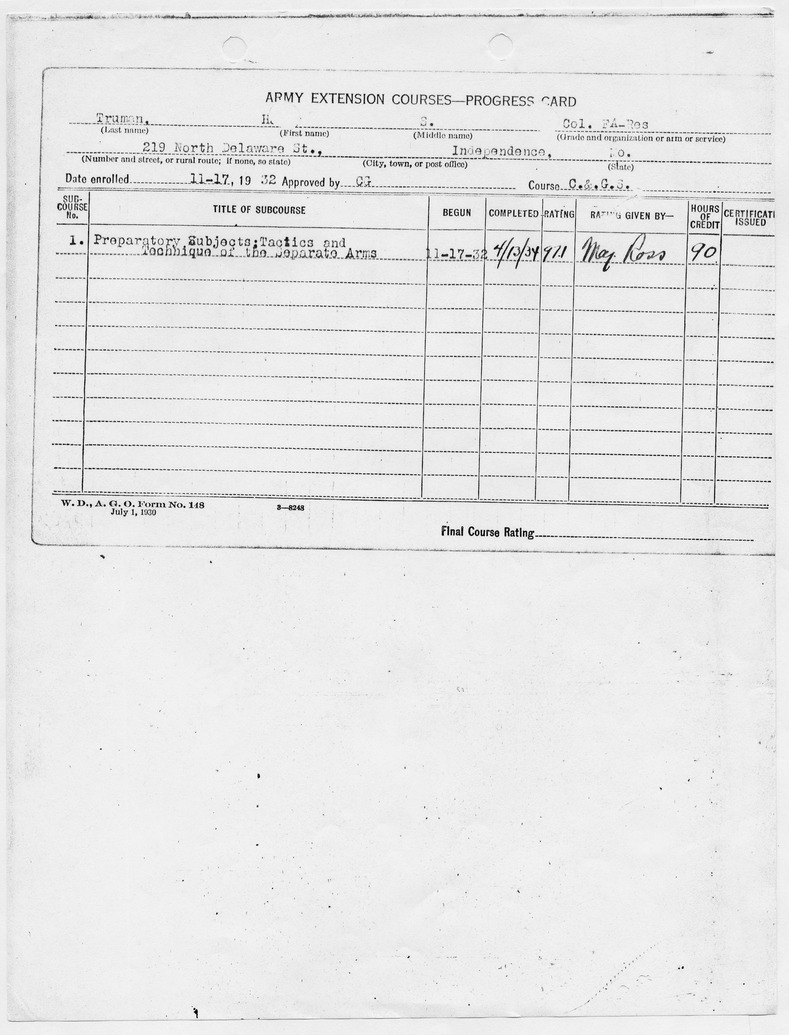 ARMY EXTENSION COURSES—PROGRESS CARD
Truman, H. S. Col. FA-Res
(Last name) (First name) (Middle name) (Grade and organization or arm or service)
219 North Delaware St., Independence, Mo.
(Number and street, or rural route; if none, so state) (City, town, or post office) (State)
Date enrolled 11-17, 19 32 Approved by CG Course C.&.G.S.
SUB-COURSE No. TITLE OF SUBCOURSE BEGUN COMPLETED RATING RATING GIVEN BY— HOURS OF CREDIT CERTIFICATE ISSUED
1. Preparatory Subjects;Tactics and
Technique of the Separate Arms 11-17-32 4/13/34 Maj. Ross 90
W. D., A. G. O. Form No. 148
July 1, 1930
3—8248
Final Course Rating